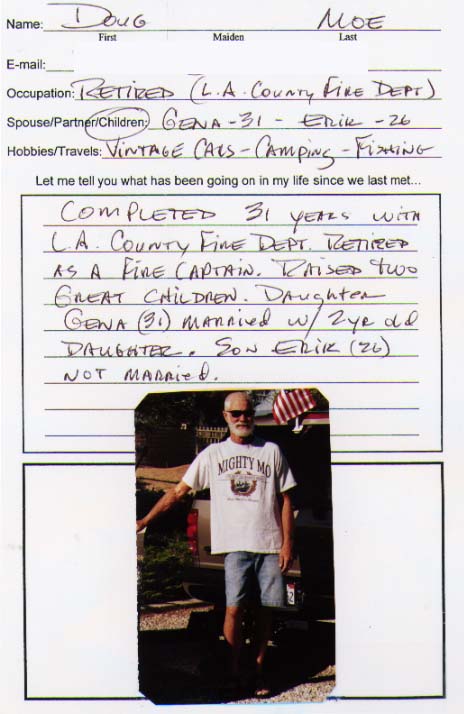 Name: Doug Moe
First Maiden Last
E-mail:
Occupation: Retired (L.A. County Fire Dept)
Spouse/Partner/Children: Gena-31 - Erik-26
Hobbies/Travels: Vintage Cars - Camping - Fishing
Let me tell you what has been going on in my life since we last met...
Completed 31 years with
L.A. County Fire Dept. Retired
as a Fire Captain. Raised two
Great children. Daughter
Gena (31) married w/ 2yr old
Daughter. Son Erik (26)
not married.
MIGHTY MO